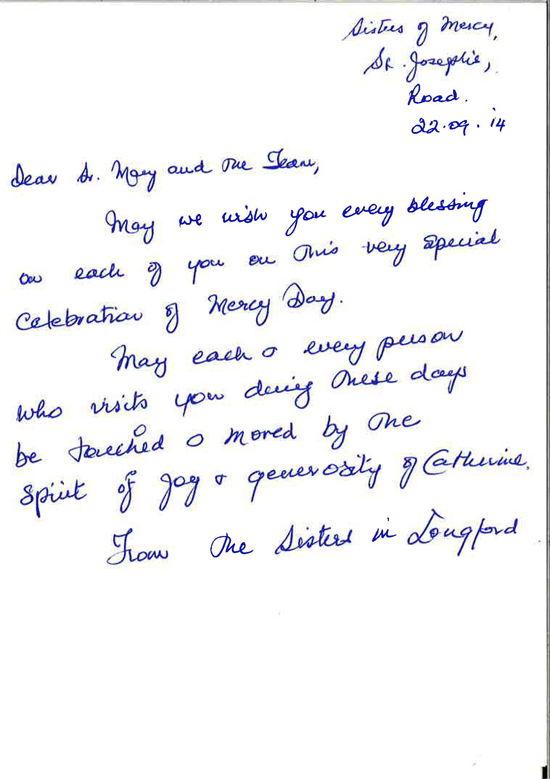 Sisters of Mercy,
St. Joseph's,
Road.
22.09.14
Dear Sr. Mary and the Team,
May we wish you every blessing
on each of you on this very special
Celebration of Mercy Day.
May each & every person
who visits you during these days
be touched & moved by the
spirit of joy & generosity of Catherine.
From the Sisters in Longford